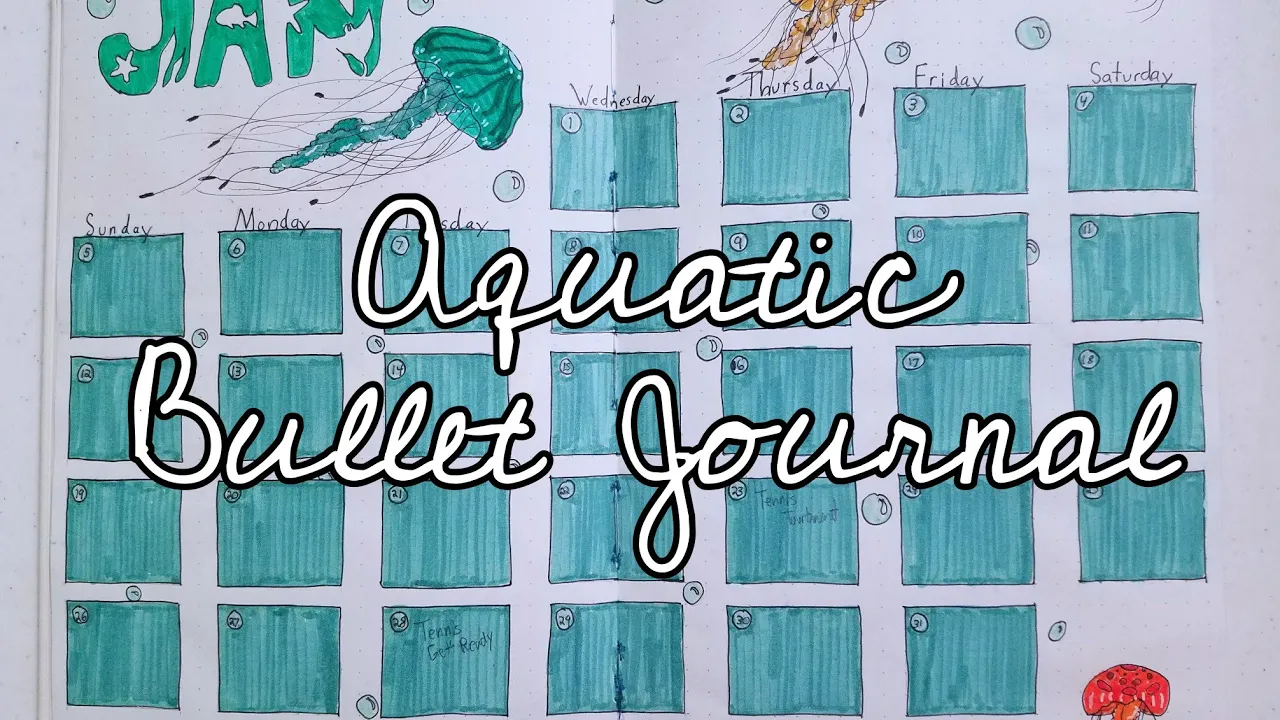 JAN
Wednesday Thursday Friday Saturday
1 2 3 4
Sunday Monday
5 6 7 8 9 10 11
Aquatic
12 13 14 15 16 17 18
Bullet Journal
19 20 21 22 23 24 25
Tennis
26 27 28 29 30 31
Tennis
Ready